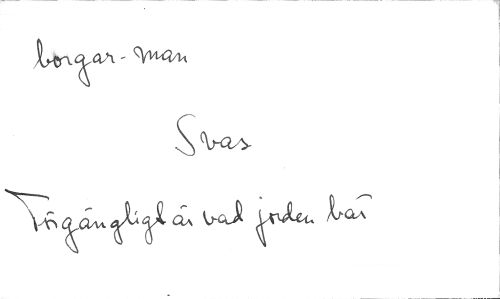 borgar-man
Svas
Förgängligt är vad jorden bär